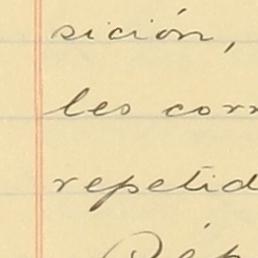 sición,
les corr
repetid